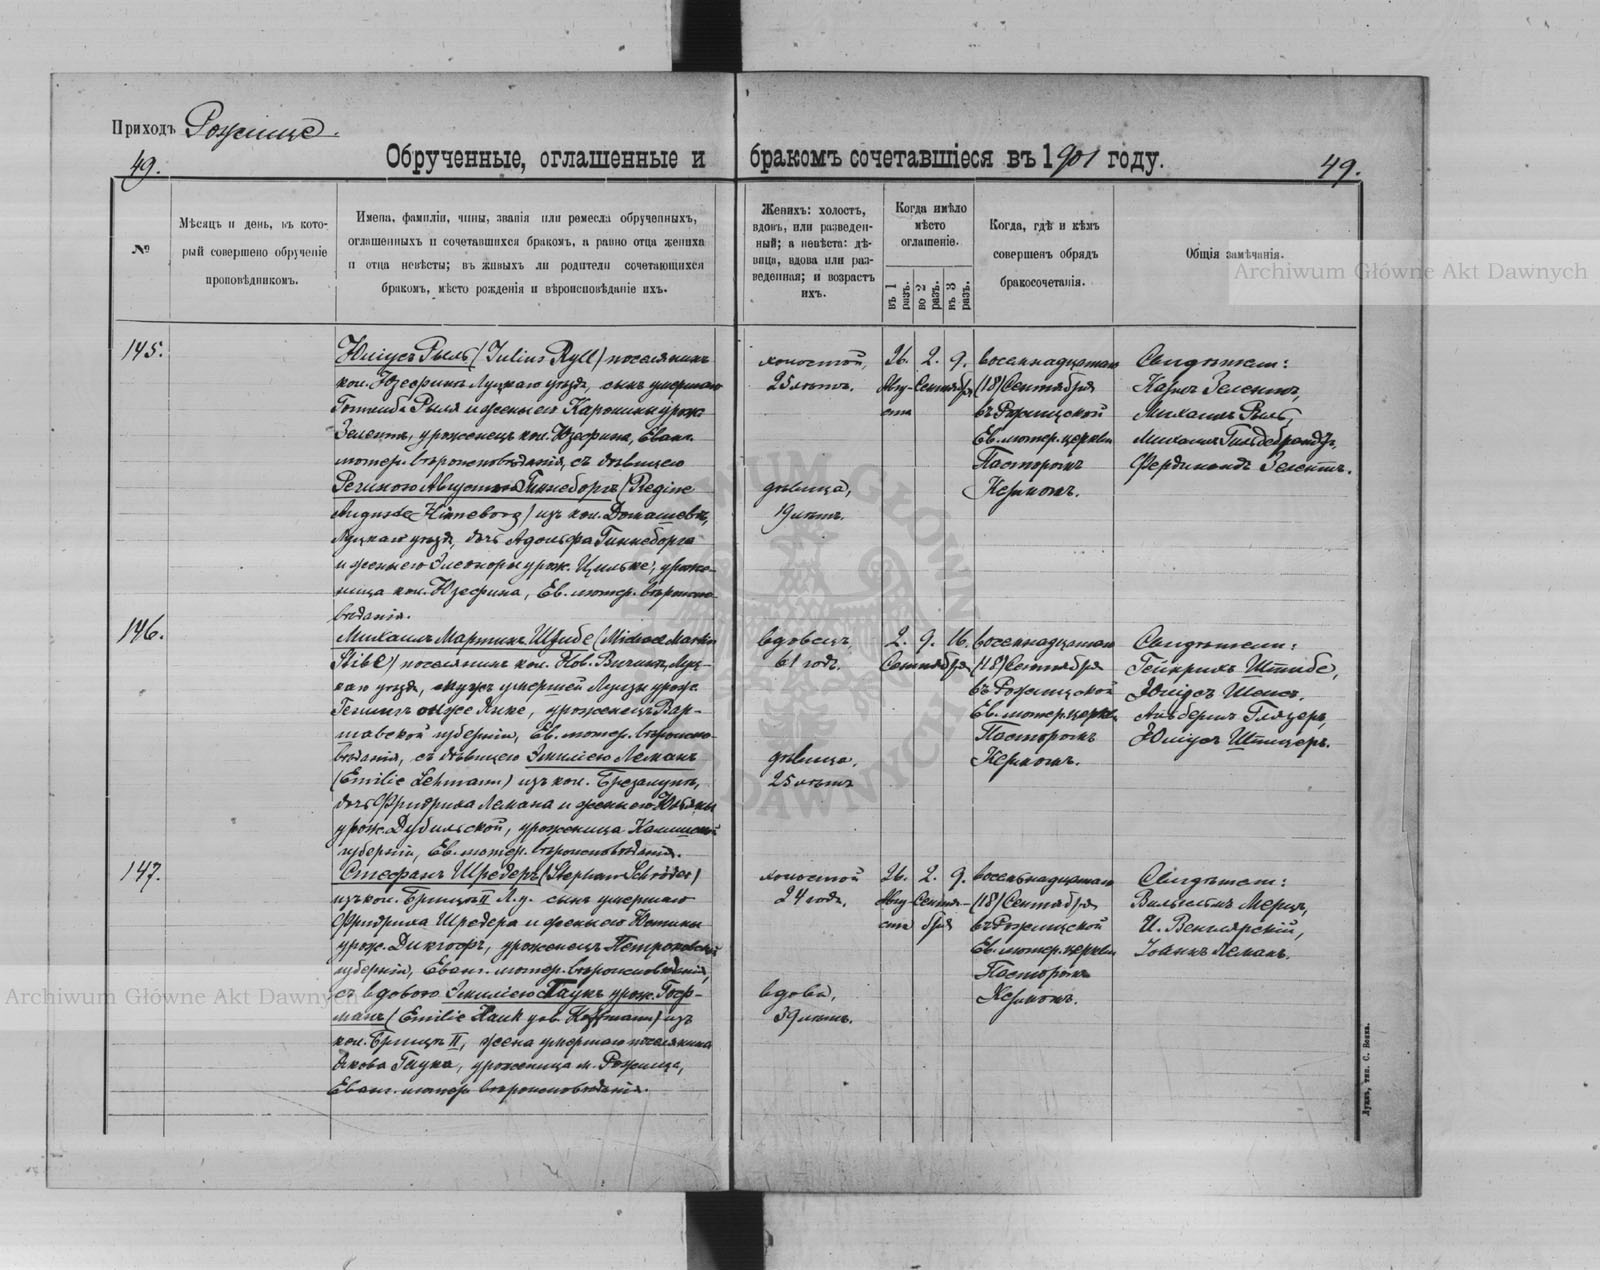 Приходъ Рожище.
49.
Обрученные, оглашенные и бракомъ сочетавшіеся въ 1901 году.
49.
№
Мѣсяцъ и день, въ кото-
рый совершено обрученіе
проповѣдникомъ.
Имена, фамиліи, чины, званія или ремесла обрученныхъ,
оглашенныхъ и сочетавшихся бракомъ, а равно отца жениха
и отца невѣсты; въ живыхъ ли родители сочетающихся
бракомъ, мѣсто рожденія и вѣроисповѣданіе ихъ.
Женихъ: холостъ,
вдовъ, или разведен-
ный; а невѣста: дѣ-
вица, вдова или раз-
веденная; и возрастъ
ихъ.
Когда имѣло
мѣсто
оглашеніе.
въ 1 разъ.
во 2 разъ.
въ 3 разъ.
Когда, гдѣ и кѣмъ
совершенъ обрядъ
бракосочетанія.
Общія замѣчанія.
Archiwum Główne Akt Dawnych
145.
Юліусъ Рыль (Julius Ryll) поселянинъ
кол. Юзефинъ Луцкаго уѣзда, сынъ умершаго
Готлиба Рыля и жены его Каролины урож.
Зелентъ, уроженецъ кол. Юзефина, Еванг.
лютер. вѣроисповѣданія, съ дѣвицею
Региною Августою Гиннеборгъ (Regine
Auguste Hinneborg) изъ кол. Домашевъ,
Луцкаго уѣзда, дочь Адольфа Гиннеборга
и жены его Элеоноры урож. Цильке, уроже-
ница кол. Юзефина, Ев. лютер. вѣроиспо-
вѣданія.
холостой,
25 лѣтъ.
дѣвица,
19 лѣтъ.
26. 2. 9.
Авгу- Сентября
ста
восемнадцатаго
(18) Сентября
въ Рожищской
Ев. лютер. церкви
Пасторомъ
Кермомъ.
Свидѣтели:
Карлъ Зелентъ,
Михаилъ Рыль,
Михаилъ Гильдебрандъ,
Фердинандъ Зелентъ.
146.
Михаилъ Мартинъ Штибе (Michael Martin
Stibe) поселянинъ кол. Нов. Вичинъ, Луц-
каго уѣзда, мужъ умершей Луизы урож.
Генингъ онъже Янке, уроженецъ Вар-
шавской губерніи, Ев. лютер. вѣроиспо-
вѣданія, съ дѣвицею Эмиліею Леманъ
(Emilie Lehmann) изъ кол. Брезалупъ,
дочь Фридриха Лемана и жены его Юліяны
урож. Дубильской, уроженица Калишской
губерніи, Ев. лютер. вѣроисповѣданія.
вдовецъ,
61 годъ.
дѣвица,
25 лѣтъ
2. 9. 16.
Сентября
восемнадцатаго
(18) Сентября
въ Рожищской
Ев. лютер. церкви
Пасторомъ
Кермомъ.
Свидѣтели:
Гейнрихъ Штибе,
Юліусъ Шенсъ,
Альбертъ Глязеръ,
Юліусъ Штицеръ.
147.
Стефанъ Шредеръ (Stephan Schröder)
изъ кол. Брищъ II Л.у. сынъ умершаго
Фридриха Шредера и жены его Юстины
урож. Дикгофъ, уроженецъ Петроковской
губерніи, Еванг. лютер. вѣроисповѣданія,
съ вдовою Эмиліею Гаукъ урож. Гоф-
манъ (Emilie Hauk geb. Hoffmann) изъ
кол. Брищъ II, жена умершаго поселянина
Якова Гаука, уроженица м. Рожища,
Еванг. лютер. вѣроисповѣданія.
холостой
24 года.
вдова,
39 лѣтъ.
26. 2. 9.
Авгу- Сентя-
ста бря
восемьнадцатаго
(18) Сентября
въ Рожищской
Ев. лютер. церкви
Пасторомъ
Кермомъ.
Свидѣтели:
Вильгельмъ Мерцъ,
И. Венглярскій,
Іоаннъ Леманъ.
Archiwum Główne Akt Dawnych
Луцкъ, тип. С. Бокха.